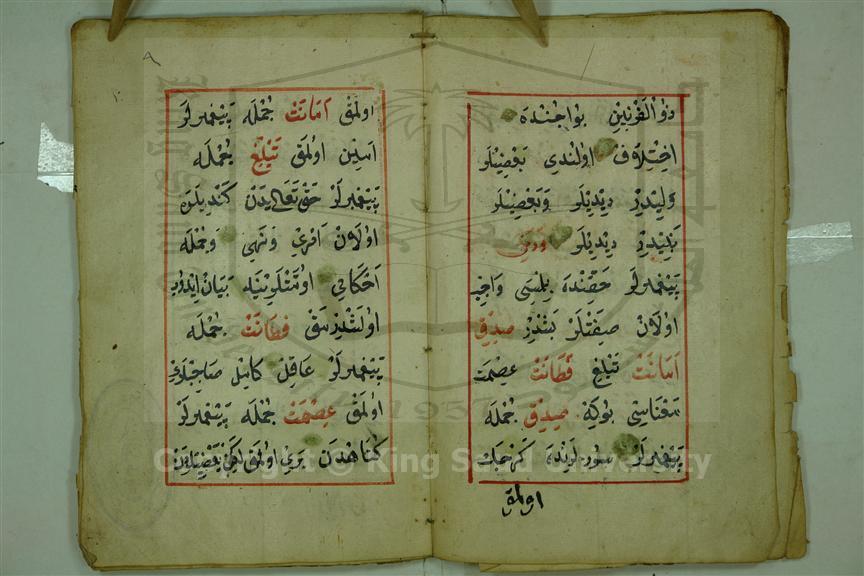 ذُو الْقَرْنَيْنِ بُواچُنْدَه
اِخْتِلَافْ اُولُنْدِى بَعْضِيلَر
وَلِيدِرْ دِيدِيلَر وَبَعْضِيلَر
نَبِيدِرْ دِيدِيلَر وَدَخِى
پَيْغَمْبَرلَر حَقِنْدَه بِلْمَسِى وَاجِب
اُولَانْ صِفَتْلَرْ بَشْدِرْ صِدْقْ
اَمَانَتْ تَبْلِيغْ فَطَانَتْ عِصْمَتْ
مَعْنَاسِى بُوكِه صِدْقْ جُمْلَه
پَيْغَمْبَرلَر سُوزلَرِنْدَه كَرْچَكْ
اولمق
اُولْمَقْ اَمَانَتْ جُمْلَه پَيْغَمْبَرلَر
اَمِينْ اُولْمَقْ تَبْلِيغْ جُمْلَه
پَيْغَمْبَرلَرْ حَقْ تَعَالَيدَنْ كَنْدِيلَرَه
اُولَانْ اَمْرِى وَنَهْيِ وَجُمْلَه
اَحْكَامِى اُمَّتْلَرِينَه بَيَانْ ايدُوب
اُولَشْدِرْمَقْ فَطَانَتْ جُمْلَه
پَيْغَمْبَرلَرْ عَاقِلْ كَامِلْ صَاحِبْلَرِى
اُولْمَقْ عِصْمَتْ جُمْلَه پَيْغَمْبَرلَرْ
كُنَاهْدَنْ بَرِى اُولْمَقْ لَكِنْ بَعْضِيلَرْدَنْ
٩
Copyright © King Saud University
1957